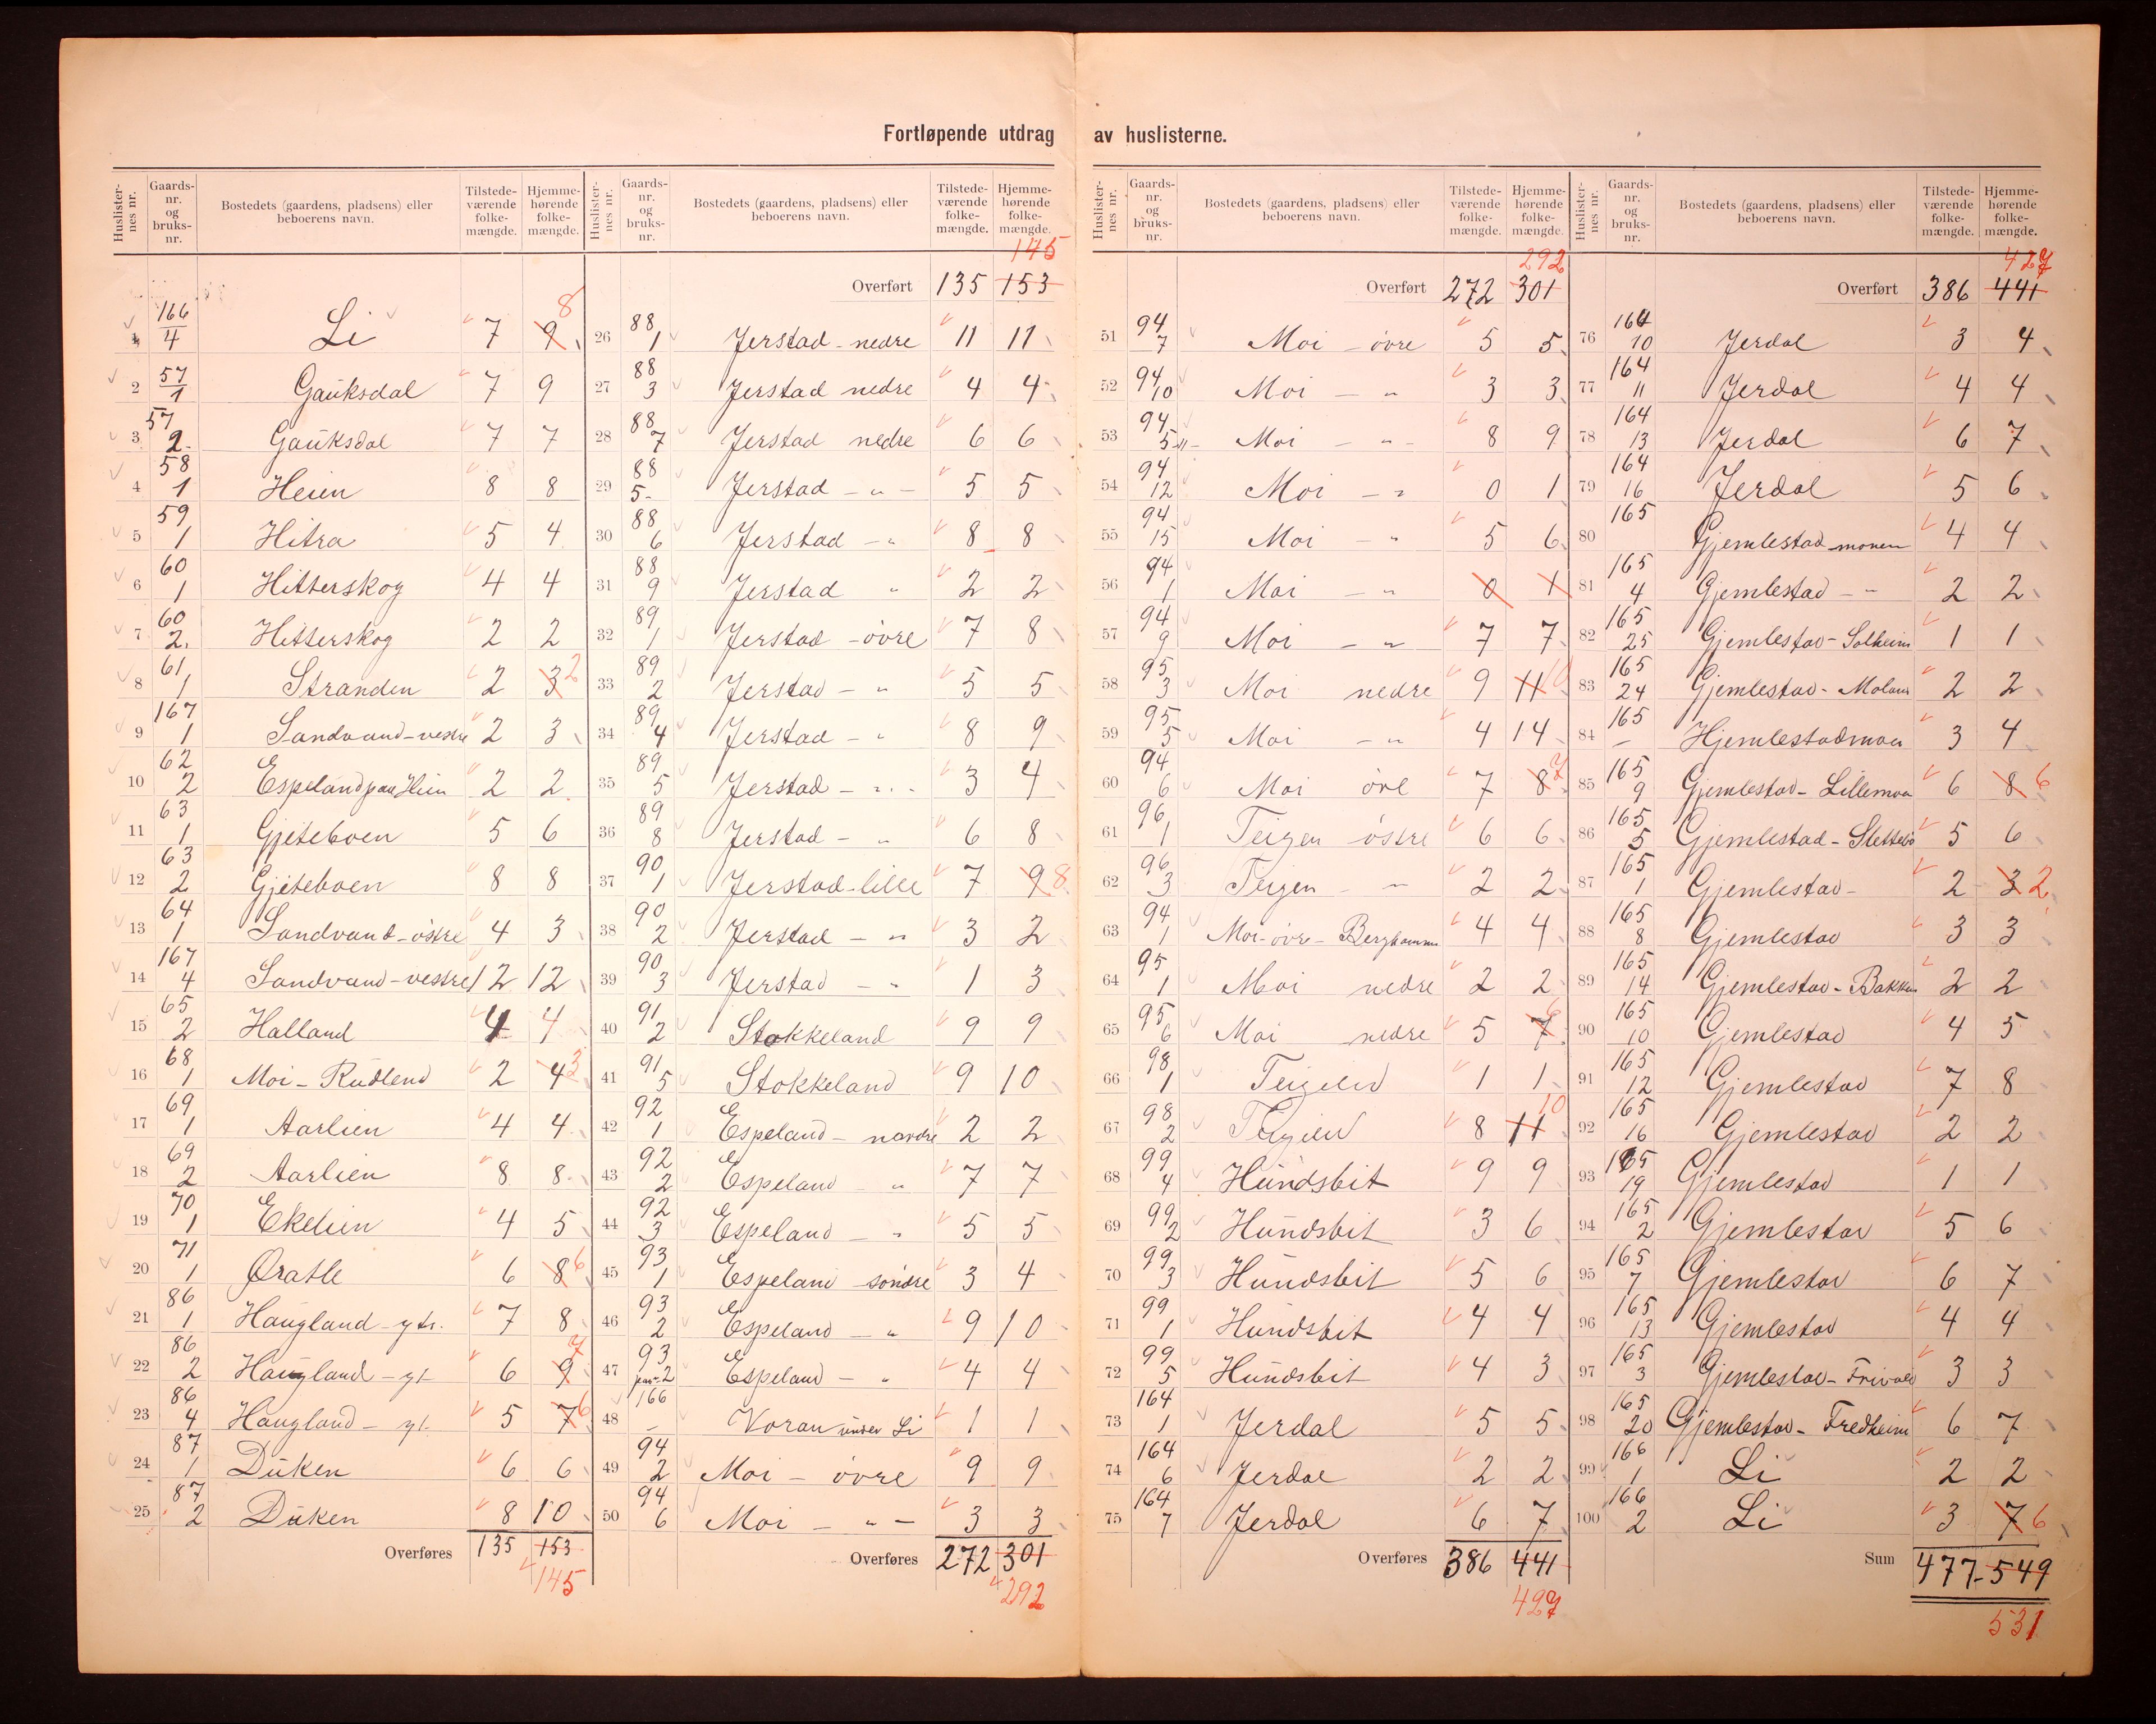 Fortløpende utdrag av huslisterne.
Huslisternes nr. | Gaards-nr. og bruks-nr. | Bostedets (gaardens, pladsens) eller beboerens navn. | Tilstedeværende folkemængde. | Hjemmehørende folkemængde.
1 166/4 Li 7 9 8
2 57/1 Gauksdal 7 9
3 57/2 Gauksdal 7 7
4 58/1 Heien 8 8
5 59/1 Hitra 5 4
6 60/1 Hitterskog 4 4
7 60/2 Hitterskog 2 2
8 61/1 Stranden 2 3 2
9 167/1 Sandvand-vestre 2 3
10 62/2 Espeland paa Heien 2 2
11 63/1 Gjiteboen 5 6
12 63/2 Gjiteboen 8 8
13 64/1 Sandvand-østre 4 3
14 167/4 Sandvand-vestre 12 12
15 65/2 Halland 4 4
16 68/1 Moi-Rudlend 2 4 3
17 69/1 Aarlien 4 4
18 69/2 Aarlien 8 8
19 70/1 Ekelien 4 5
20 71/1 Øratle 6 8 6
21 86/1 Haugland-ytr. 7 8
22 86/2 Haugland-yt 6 9 7
23 86/4 Haugland-yt. 5 7 6
24 87/1 Duken 6 6
25 87/2 Duken 8 10
Overføres 135 153
145
Huslisternes nr. | Gaards-nr. og bruks-nr. | Bostedets (gaardens, pladsens) eller beboerens navn. | Tilstedeværende folkemængde. | Hjemmehørende folkemængde.
145
Overført 135 153
26 88/1 Jerstad-nedre 11 11
27 88/3 Jerstad nedre 4 4
28 88/7 Jerstad nedre 6 6
29 88/5 Jerstad - " - 5 5
30 88/6 Jerstad - " 8 8
31 88/9 Jerstad " 2 2
32 89/1 Jerstad-övre 7 8
33 89/2 Jerstad - " 5 5
34 89/4 Jerstad - " 8 9
35 89/5 Jerstad - " - 3 4
36 89/8 Jerstad - " 6 8
37 90/1 Jerstad-lille 7 9 8
38 90/2 Jerstad - " 3 2
39 90/3 Jerstad - " 1 3
40 91/2 Stokkeland 9 9
41 91/5 Stokkeland 9 10
42 92/1 Espeland - nordre 2 2
43 92/2 Espeland " 7 7
44 92/3 Espeland - " 5 5
45 93/1 Espeland söndre 3 4
46 93/2 Espeland - " 9 10
47 93/2 Espeland - " 4 4
48 166/- Voran under Li 1 1
49 94/2 Moi - övre 9 9
50 94/6 Moi - " - 3 3
Overføres 272 301
292
Huslisternes nr. | Gaards-nr. og bruks-nr. | Bostedets (gaardens, pladsens) eller beboerens navn. | Tilstedeværende folkemængde. | Hjemmehørende folkemængde.
292
Overført 272 301
51 94/7 Moi - övre 5 5
52 94/10 Moi - " 3 3
53 94/5 Moi - " - 8 9
54 94/12 Moi - " 0 1
55 94/15 Moi - " 5 6
56 94/1 Moi - " 0 1
57 94/9 Moi - " 7 7
58 95/3 Moi nedre 9 11 10
59 95/5 Moi - " 4 14
60 94/6 Moi övre 7 8 7
61 96/1 Teigen östre 6 6
62 96/3 Teigen - " 2 2
63 94/1 Moi-övre - 4 4
64 95/1 Moi nedre 2 2
65 95/6 Moi nedre 5 7 6
66 98/1 Teigelid 1 1
67 98/2 Teigelid 8 11 10
68 99/4 Hundsbit 9 9
69 99/2 Hundsbit 3 6
70 99/3 Hundsbit 5 6
71 99/1 Hundsbit 4 4
72 99/5 Hundsbit 4 3
73 164/1 Jerdal 5 5
74 164/6 Jerdal 2 2
75 164/7 Jerdal 6 7
Overføres 386 441
427
Huslisternes nr. | Gaards-nr. og bruks-nr. | Bostedets (gaardens, pladsens) eller beboerens navn. | Tilstedeværende folkemængde. | Hjemmehørende folkemængde.
427
Overført 386 441
76 164/10 Jerdal 3 4
77 164/11 Jerdal 4 4
78 164/13 Jerdal 6 7
79 164/16 Jerdal 5 6
80 165 Gjemlestad-monen 4 4
81 165/4 Gjemlestad - " 2 2
82 165/25 Gjemlestad-Solheim 1 1
83 165/24 Gjemlestad- 2 2
84 165/- Hjemlestadmoen 3 4
85 165/9 Gjemlestad-Lillemoen 6 8 6
86 165/5 Gjemlestad-Slettebö 5 6
87 165/1 Gjemlestad- 2 3 2
88 165/8 Gjemlestad 3 3
89 165/14 Gjemlestad-Bakken 2 2
90 165/10 Gjemlestad 4 5
91 165/12 Gjemlestad 7 8
92 165/16 Gjemlestad 2 2
93 165/19 Gjemlestad 1 1
94 165/2 Gjemlestad 5 6
95 165/7 Gjemlestad 6 7
96 165/13 Gjemlestad 4 4
97 165/3 Gjemlestad-Frivold 3 3
98 165/20 Gjemlestad-Fredheim 6 7
99 166/1 Li 2 2
100 166/2 Li 3 7 6
Sum 477-549
531